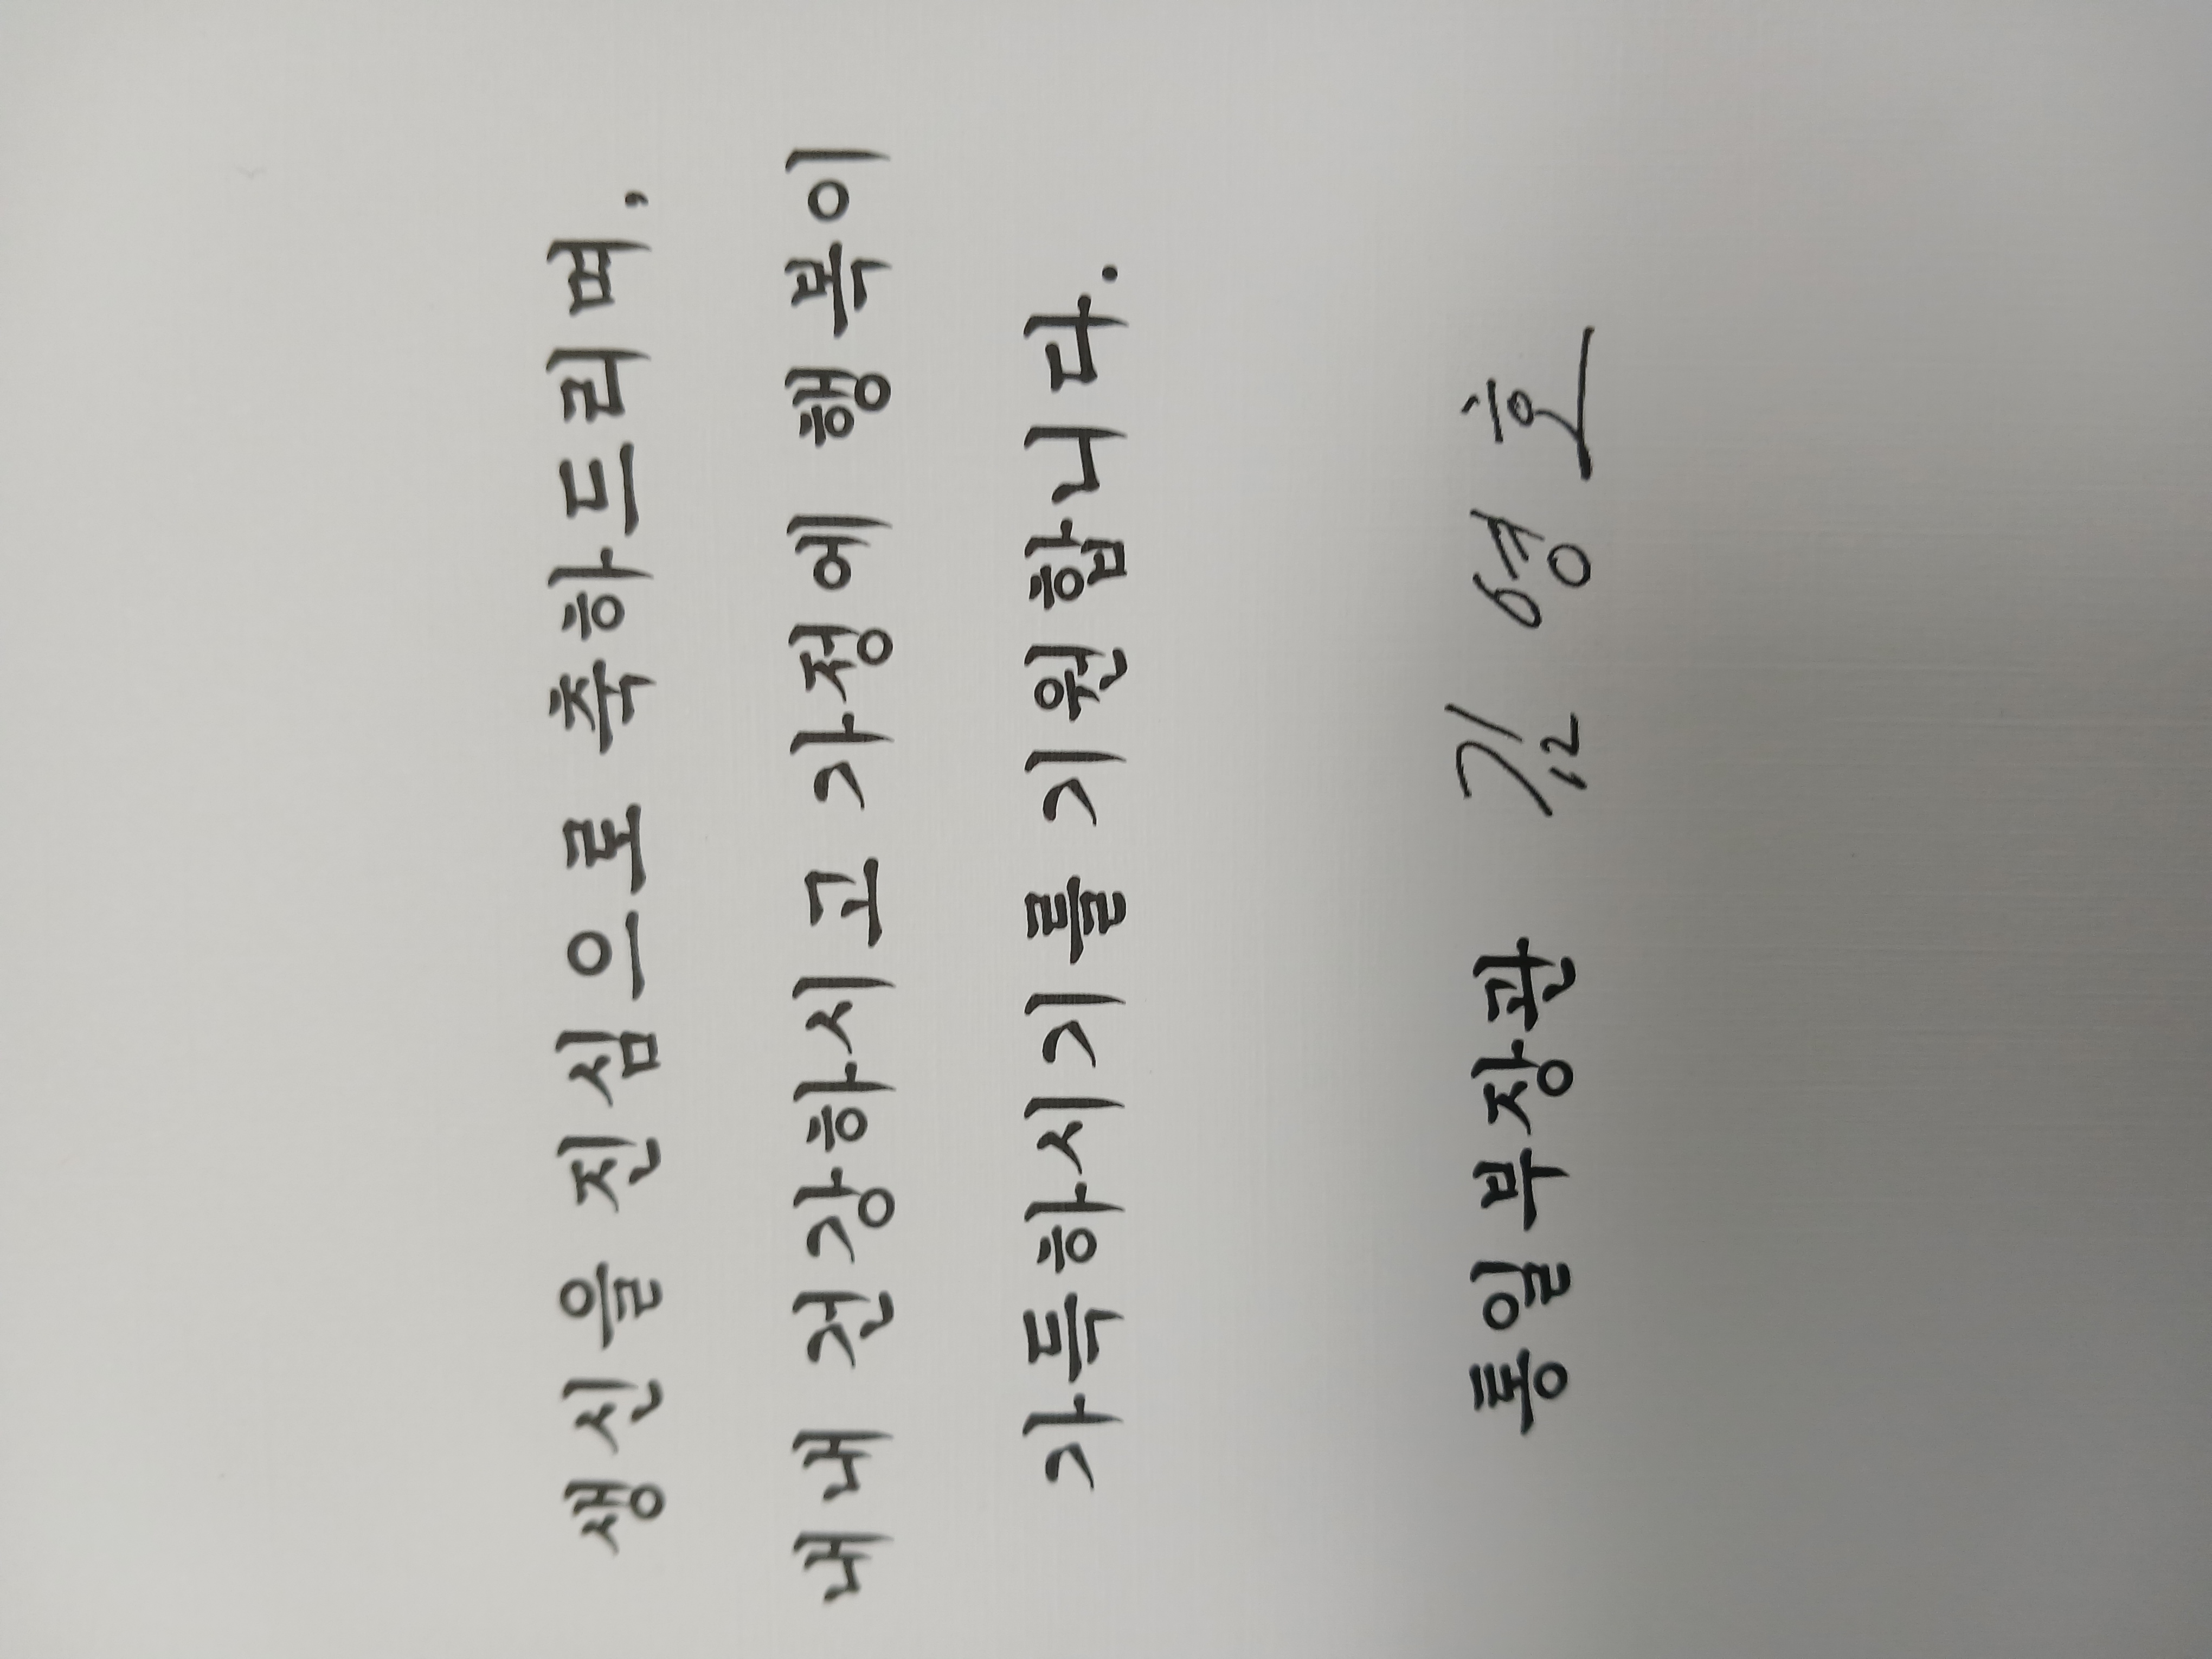 생신을 진심으로 축하드리며,
내내 건강하시고 가정에 행복이
가득하시기를 기원합니다.
통일부장관 김영호